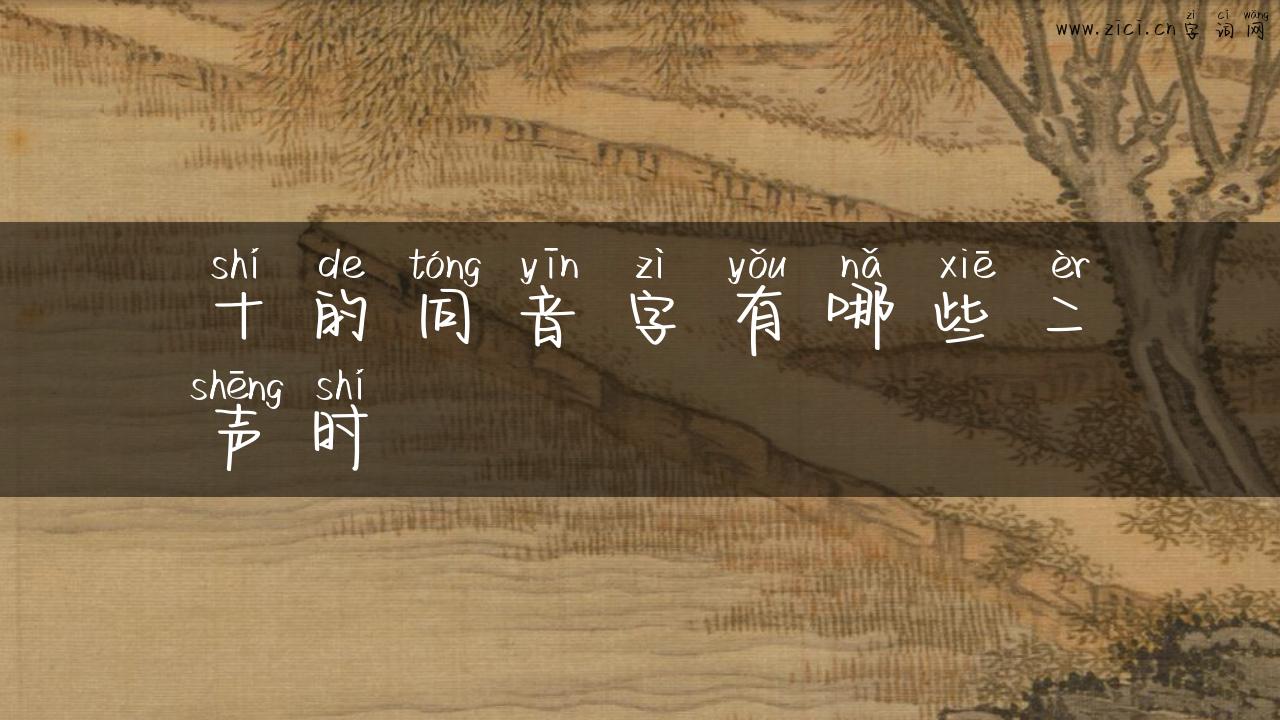 zì cí wǎng
www.zici.cn 字 词 网
shí de tóng yīn zì yǒu nǎ xiē èr
十 的 同 音 字 有 哪 些 二
shēng shí
声 时